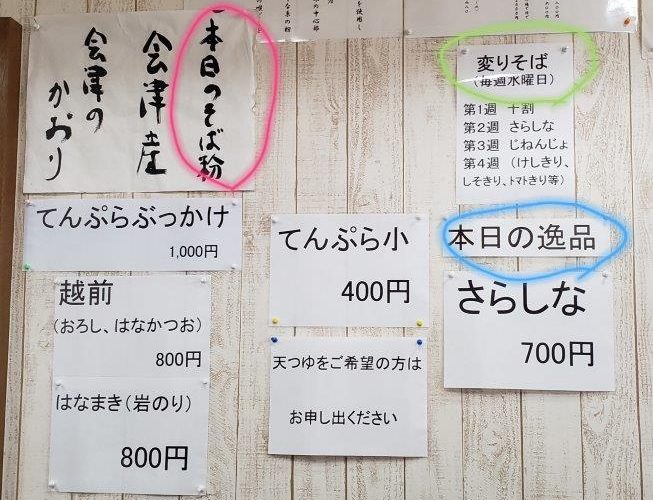 本日のそば粉
会津産
会津の
かおり
変りそば
(毎週水曜日)
第1週 十割
第2週 さらしな
第3週 じねんじょ
第4週 (けしきり、
しそきり、トマトきり等)
てんぷらぶっかけ
1,000円
越前
(おろし、はなかつお)
800円
はなまき(岩のり)
800円
てんぷら小
400円
天つゆをご希望の方は
お申し出ください
本日の逸品
さらしな
700円